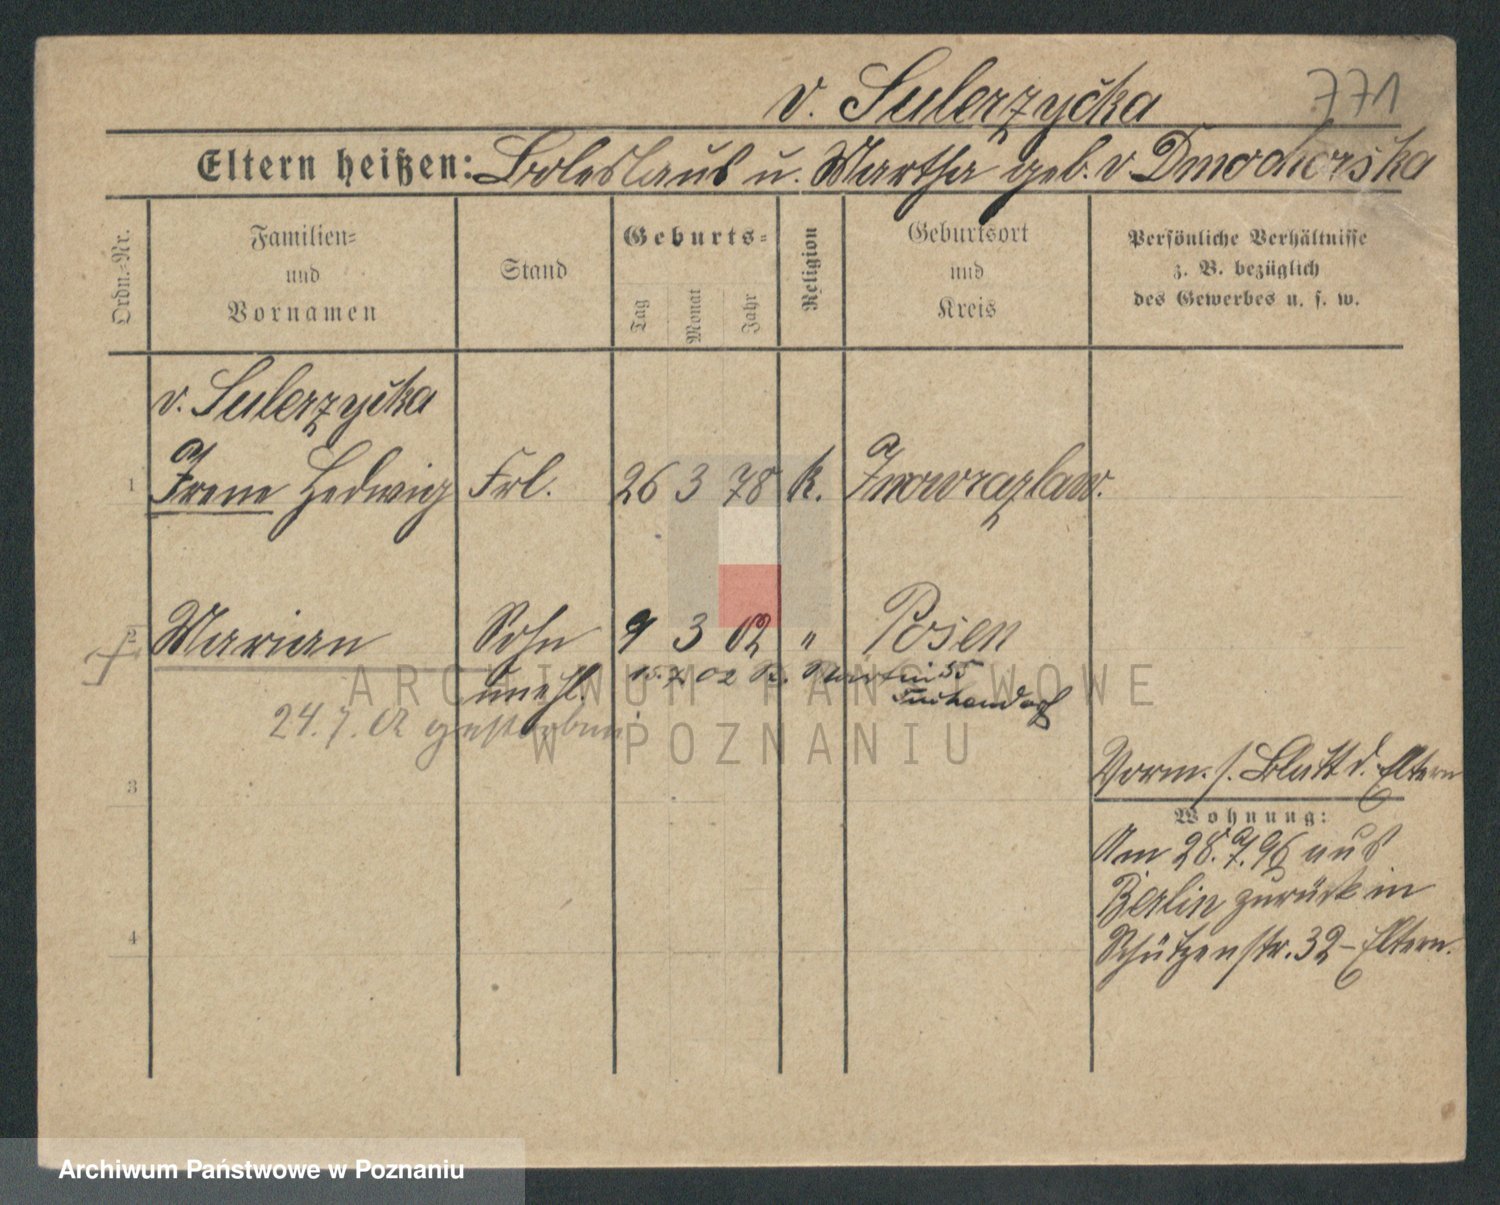 v. Sulerzycka
771
Eltern heißen: Boleslaus u. Martha geb. v Dmochorska
Ordn.-Nr.
Familien-
und
Vornamen
Stand
Geburts-
Tag
Monat
Jahr
Religion
Geburtsort
und
Kreis
Persönliche Verhältnisse
z. B. bezüglich
des Gewerbes u. s. w.
v. Sulerzycka
1 Irene Hedwig Frl. 26 3 78 K. Inowrazlaw.
2 Marian Sohn 9 3 02 " Posen
unehl. 15. 7. 02
24. 7. 02 gestorben.
Vorm. s. Blatt d. Eltern
3
Wohnung:
Am 28. 7. 96 aus
Berlin zurück in
4 Schützenstr. 32 - Eltern.
ARCHIWUM PAŃSTWOWE
W POZNANIU
Archiwum Państwowe w Poznaniu